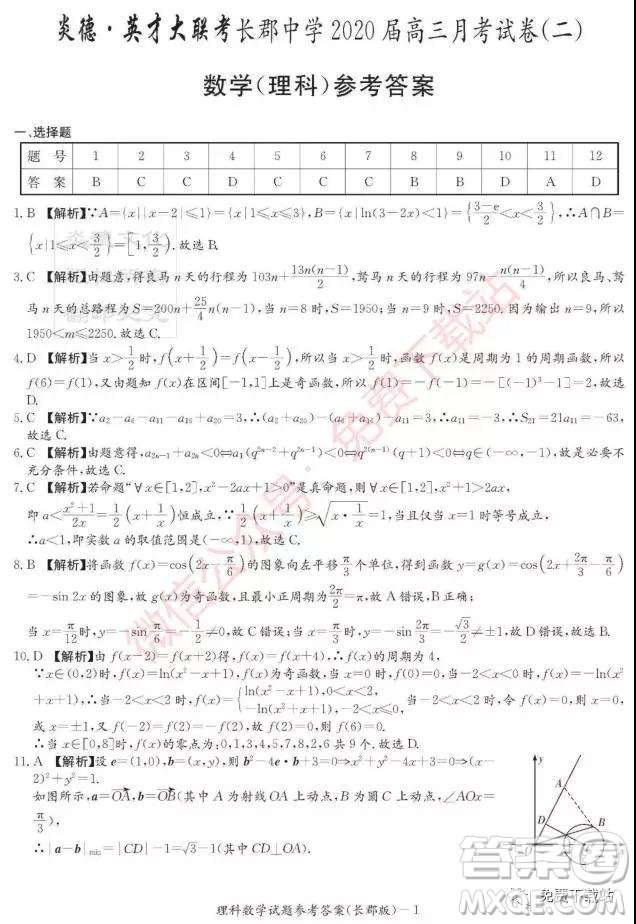 炎德·英才大联考长郡中学2020届高三月考试卷(二)
数学(理科)参考答案
一、选择题
题 号 1 2 3 4 5 6 7 8 9 10 11 12
答 案 B C C D C C C B C D A D
1.B 【解析】∵A={x||x-2|≤1}={x|1≤x≤3},B={x|ln(3-2x)<1}={(3-e)/2<x<3/2},∴A∩B=
{x|1≤x<3/2}=[1,3/2).故选B.
3.C 【解析】由题意,得良马n天的行程为103n+13n(n-1)/2,驽马n天的行程为97n-n(n-1)/4,所以良马、驽
马n天的总路程为S=200n+25/4n(n-1),当n=8时,S=1950;当n=9时,S=2250.因为输出n=9,所以
1950<m≤2250.故选C.
4.D 【解析】当x>1/2时,f(x+1/2)=f(x-1/2),所以当x>1/2时,函数f(x)是周期为1的周期函数,所以
f(6)=f(1),又由题知f(x)在区间[-1,1]上是奇函数,所以f(1)=-f(-1)=-[(-1)³-1]=2.故选
D.
5.C 【解析】∵a₂-a₆-a₁₁-a₁₆+a₂₀=3,∴(a₂+a₂₀)-(a₆+a₁₆)-a₁₁=3,∴a₁₁=-3,∴S₂₁=21a₁₁=-63,
故选C.
6.C 【解析】由题意得,a₂ₙ₋₁+a₂ₙ<0⇔a₁(q²ⁿ⁻²+q²ⁿ⁻¹)<0⇔q²⁽ⁿ⁻¹⁾(q+1)<0⇔q∈(-∞,-1),故是必要不
充分条件,故选C.
7.C 【解析】若命题“∀x∈[1,2],x²-2ax+1>0”是真命题,则∀x∈[1,2],x²+1>2ax,
即a<(x²+1)/2x=1/2(x+1/x)恒成立,∵1/2(x+1/x)≥√(x·1/x)=1,当且仅当x=1时等号成立,
∴a<1,即实数a的取值范围是(-∞,1),故选C.
8.B 【解析】将函数f(x)=cos(2x-π/6)的图象向左平移π/3个单位,得到函数y=g(x)=cos(2x+2π/3-π/6)
=-sin 2x的图象,故g(x)为奇函数,且最小正周期为2π/2=π,故A错误,B正确;
当x=π/12时,y=-sinπ/6=-1/2≠0,故C错误;当x=π/3时,y=-sin2π/3=-√3/2≠±1,故D错误.故选B.
10.D 【解析】由f(x-2)=f(x+2)得,f(x)=f(x+4),∴f(x)的周期为4,
∵x∈(0,2)时,f(x)=ln(x²-x+1),f(x)为奇函数,∴当x=0时,f(0)=0,当-2<x<0时,f(x)=-ln(x²
+x+1),∴当-2<x<2时,f(x)={ln(x²-x+1),0<x<2, 0,x=0, -ln(x²+x+1),-2<x<0, 当-2<x<2时,令f(x)=0,则x=0,
或x=±1,又f(-2)=f(2)=-f(2),故f(2)=0,则f(6)=0,
∴当x∈[0,8]时,f(x)的零点为:0,1,3,4,5,7,8,2,6共9个.故选D.
11.A 【解析】设e=(1,0),b=(x,y),则b²-4e·b+3=0⇒x²+y²-4x+3=0⇒(x-
2)²+y²=1.
如图所示,a=OA,b=OB(其中A为射线OA上动点,B为圆C上动点,∠AOx=
π/3),
∴|a-b|min=|CD|-1=√3-1(其中CD⊥OA).
y
A
D
B
微信公众号:免费下载站
答案圈
免费下载站
理科数学试题参考答案(长郡版)-1